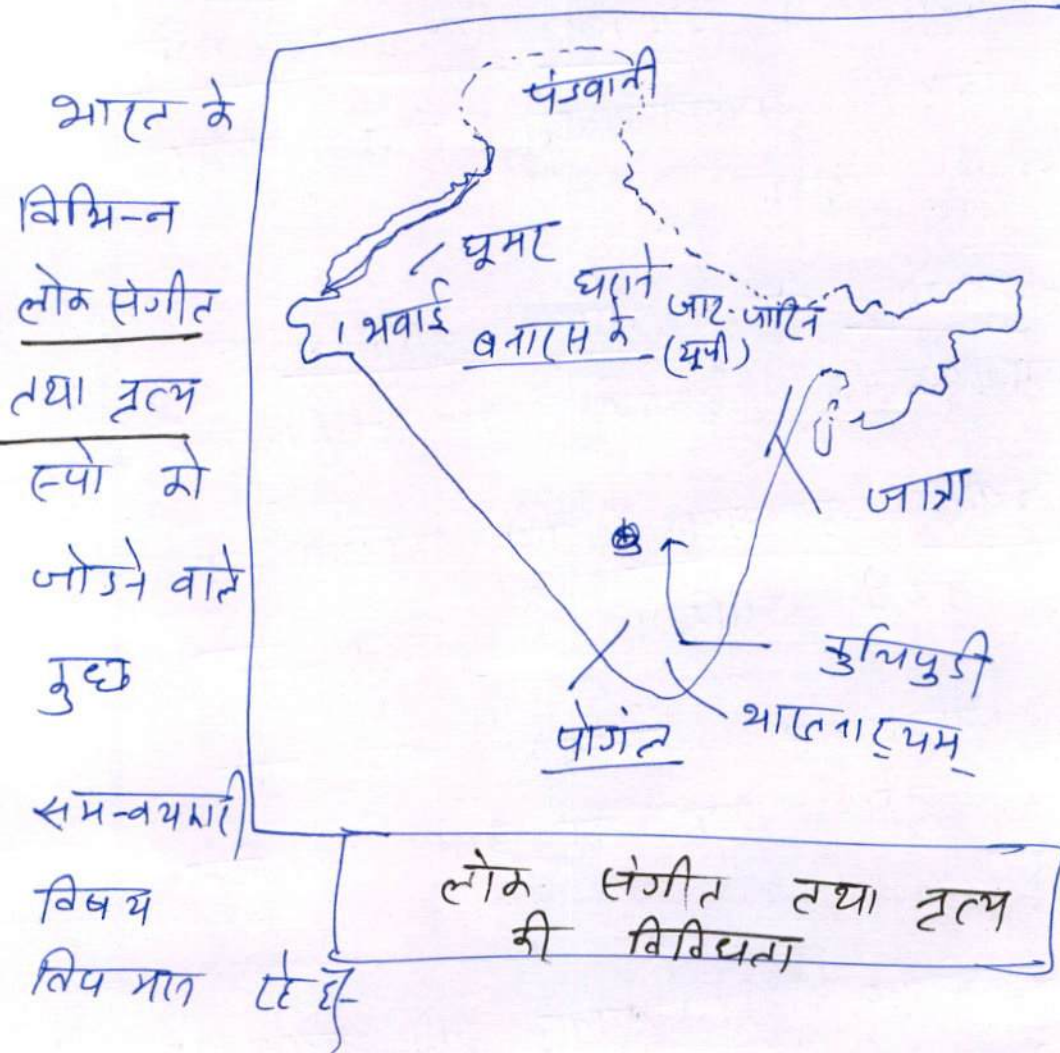 भारत के
विभिन्न
लोक संगीत
तथा नृत्य
रूपो को
जोडने वाले
कुछ
समन्वयकारी
विषय
विद्यमान रहे हैं-
पंडवानी
घूमर
भवाई
घराने
बनारस के
जाट-जाटिन
(यूपी)
जात्रा
कुचिपुडी
भारतनाट्यम्
पोगंल
लोक संगीत तथा नृत्य
की विविधता